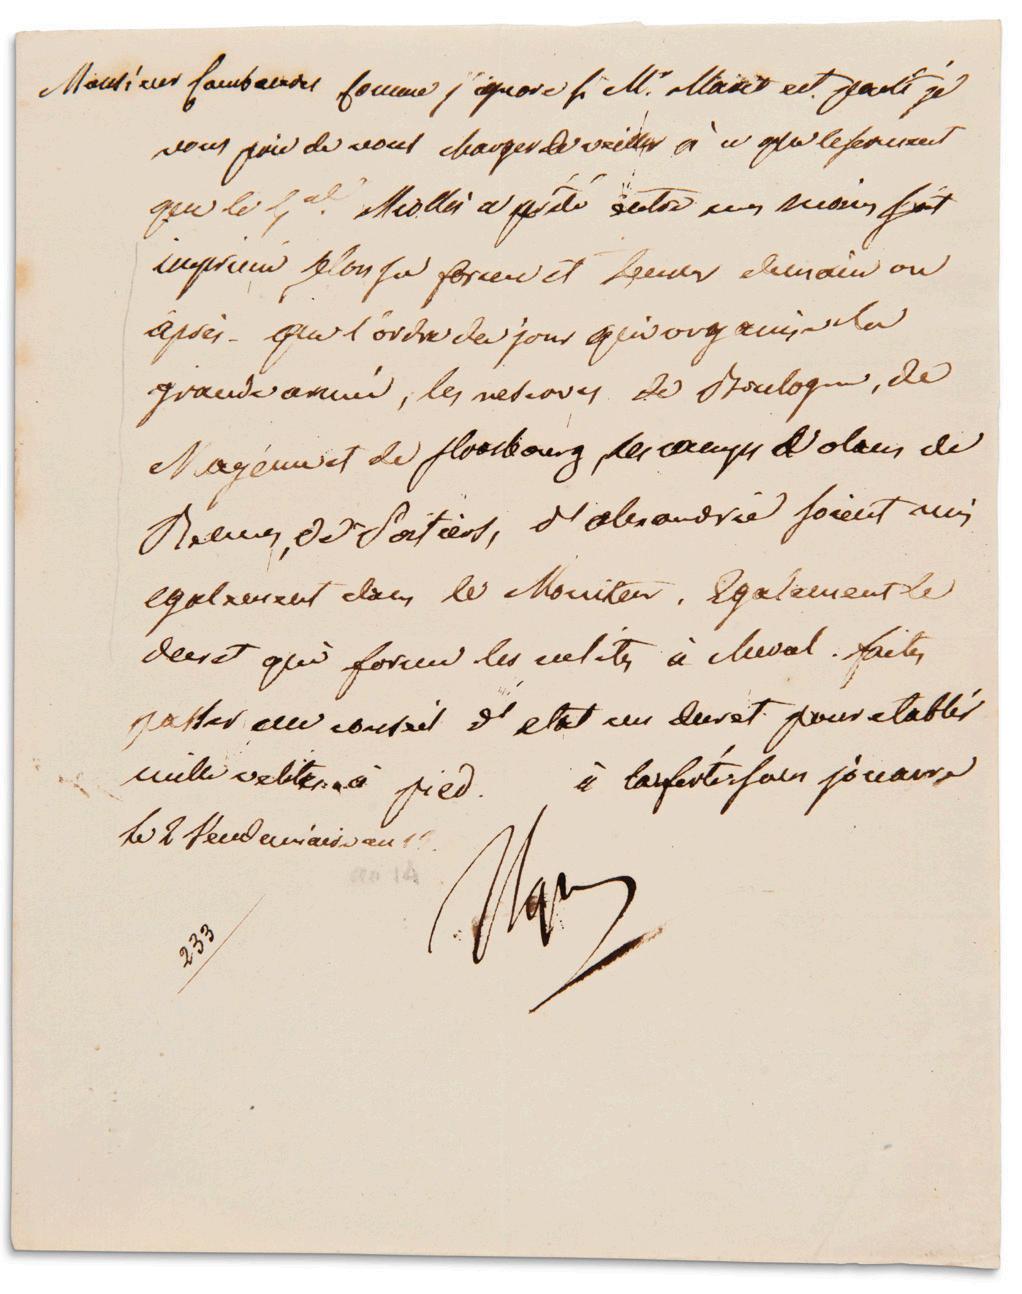 Monsieur Cambaceres comme j'ignore si Mr. Maret est parti je
vous prie de vous charger de veiller à ce que le serment
que le Gal. Miollis a prêté entre mes mains soit
imprimé selon sa forme et teneur demain ou
après - que l'ordre du jour qui organise la
grande armée, les reserves de Boulogne, de
Mayence et de strasbourg, les camps de
Rennes, de Poitiers, d'alexandrie soient mis
egalement dans le Moniteur. Egalement le
decret qui forme les velites à cheval. faites
passer au conseil d'etat un decret pour etablir
mille velites à pied. à la ferté sous jouarre
le 2 Vendemiaire an
an 14
Nap
233